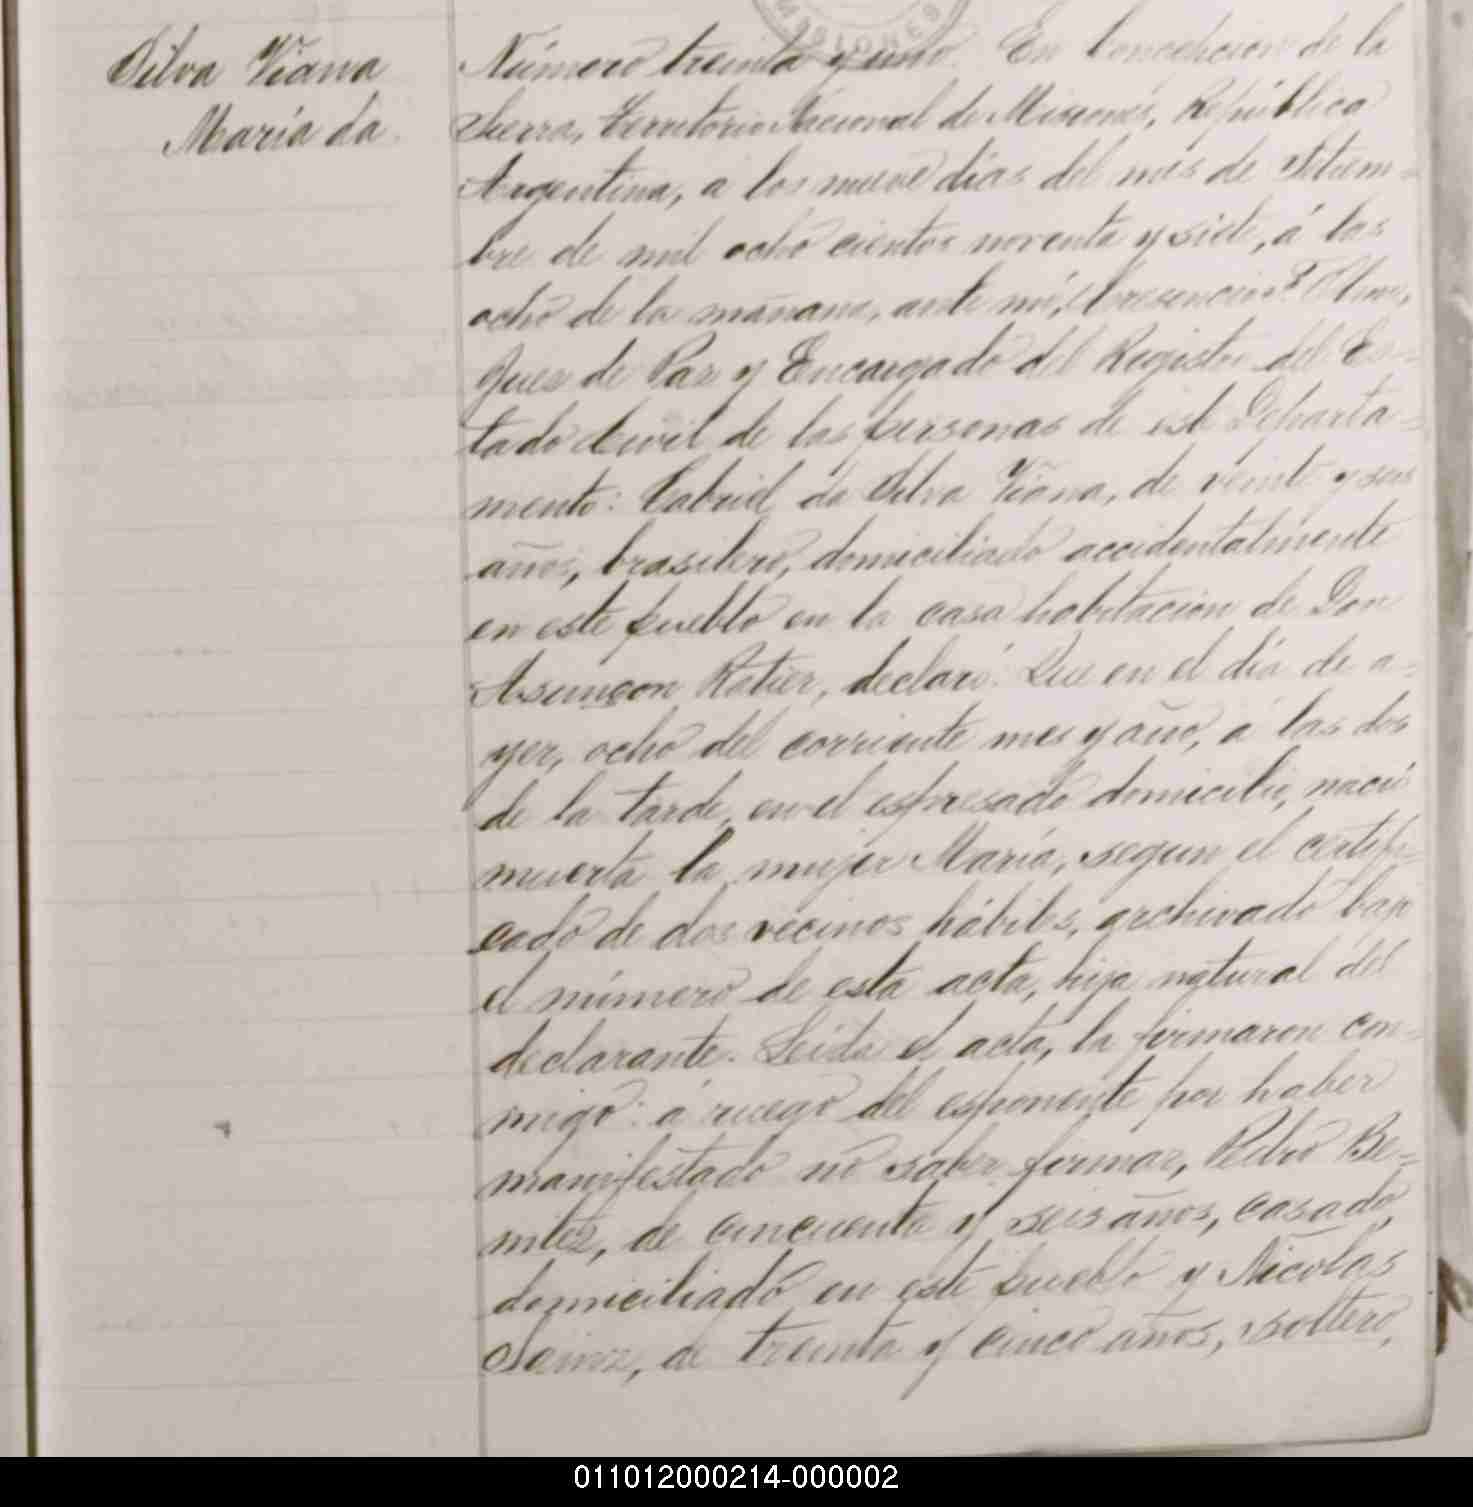 MISIONES
Silva Viana
María da
Número treinta y uno. En Concepcion de la
Sierra, Territorio Nacional de Misiones, República
Argentina, a los nueve días del mes de Setiem-
bre de mil ocho cientos noventa y siete, á las
ocho de la mañana, ante mí,
Juez de Paz y Encargado del Registro del Es-
tado Civil de las personas de este Departa-
mento: Gabriel da Silva Viana, de veinte y seis
años, brasilero, domiciliado accidentalmente
en este pueblo en la casa habitacion de Don
Asunçon Ratier, declaró: Que en el día de a-
yer, ocho del corriente mes y año, á las dos
de la tarde, en el espresado domicilio, nació
muerta la mujer María, segun el certifi-
cado de dos vecinos hábiles, archivado bajo
el número de esta acta, hija natural del
declarante. Leida el acta, la firmaron con-
migo: á ruego del esponente por haber
manifestado no saber firmar, Pedro Be-
nitez, de cincuenta y seis años, casado,
domiciliado en este pueblo y Nicolas
Sainz, de treinta y cinco años, soltero,
011012000214-000002